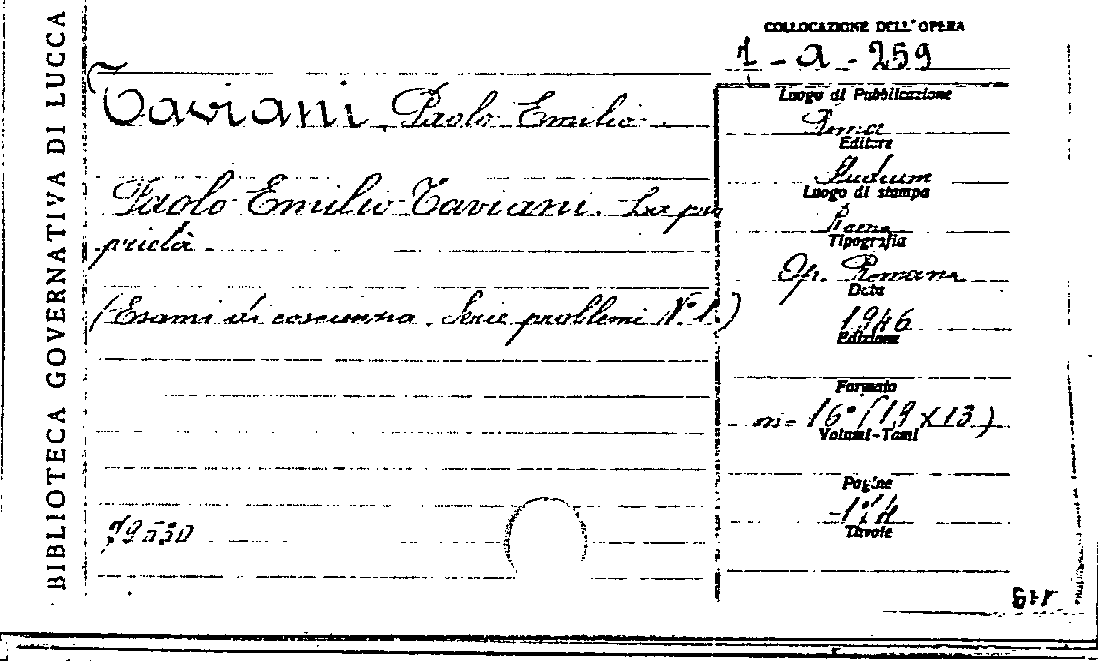 BIBLIOTECA GOVERNATIVA DI LUCCA
COLLOCAZIONE DELL'OPERA
1 - a - 259
Taviani Paolo Emilio.
Paolo Emilio Taviani. La pro
prietà.
(Esami di coscienza. Serie problemi N. 1.)
79530
Luogo di Pubblicazione
Roma
Editore
Studium
Luogo di stampa
Roma
Tipografia
Op. Romana
Data
1946
Edizione
Formato
in-16° (19 x 13)
Volumi-Tomi
Pagine
Tavole